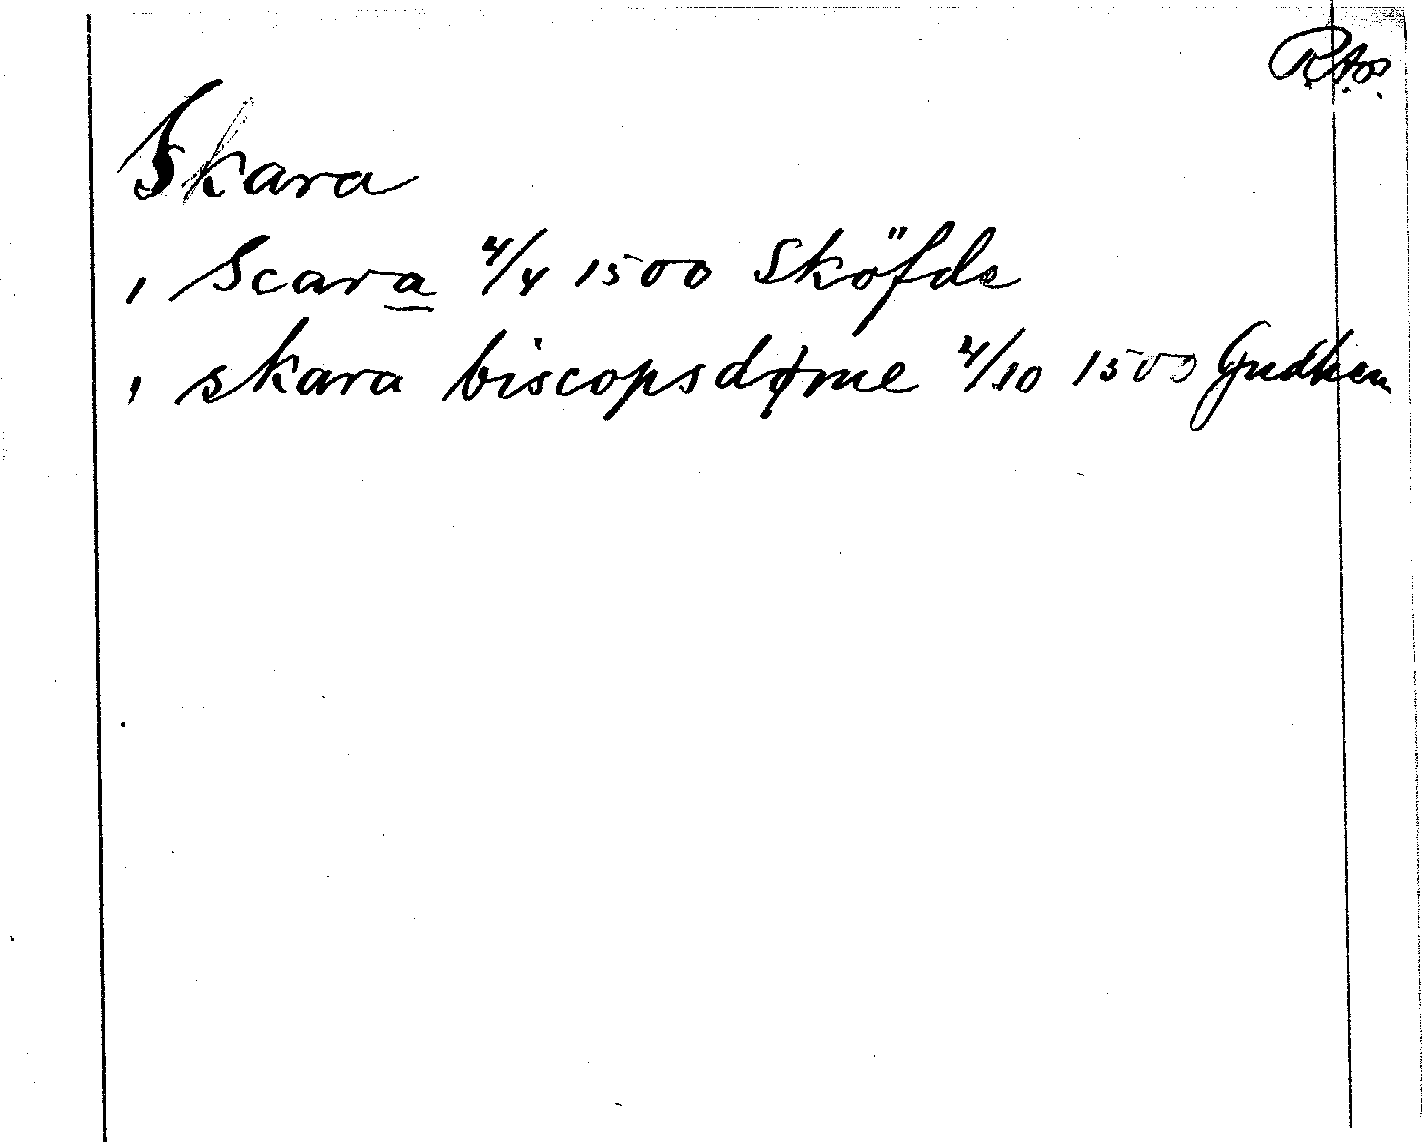 R.A.o.
Skara
, Scara 4/4 1500 Sköfde
, skara biscopsdøme 4/10 1500 Gudhem